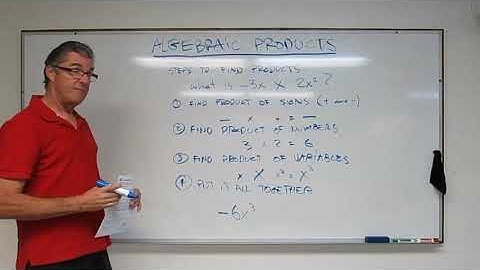 ALGEBRAIC PRODUCTS
STEPS TO FIND PRODUCTS
What is -3x × 2x² ?
① FIND PRODUCT OF SIGNS (+ or -)
- × + = -
② FIND PRODUCT OF NUMBERS
3 × 2 = 6
③ FIND PRODUCT OF VARIABLES
x × x² = x³
④ PUT IT ALL TOGETHER
-6x³